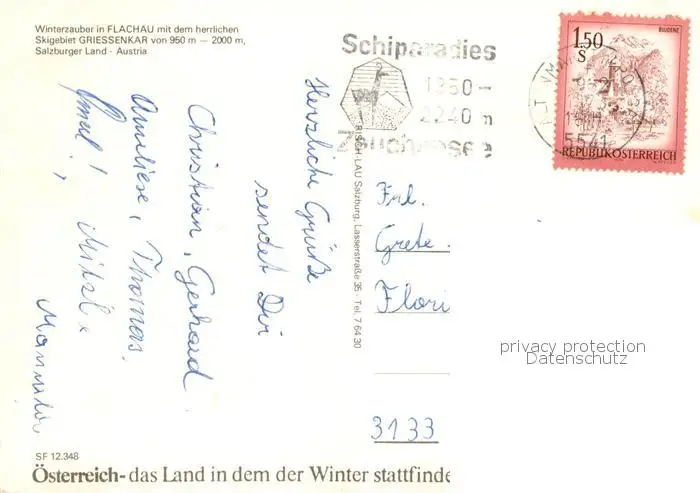 Winterzauber in FLACHAU mit dem herrlichen
Skigebiet GRIESSENKAR von 950 m — 2000 m,
Salzburger Land - Austria
Herzliche Grüße
sendet Dir
Christian, Gerhard
Anneliese, Thomas,
Mitzl
Schiparadies
1350 -
2240 m
Zauchensee
1.50
S
BLUDENZ
REPUBLIK ÖSTERREICH
5541
RISCH-LAU Salzburg, Lasserstraße 35 · Tel. 7 64 30
Frl.
Grete
Flori
3133
privacy protection
Datenschutz
SF 12.348
Österreich- das Land in dem der Winter stattfinde